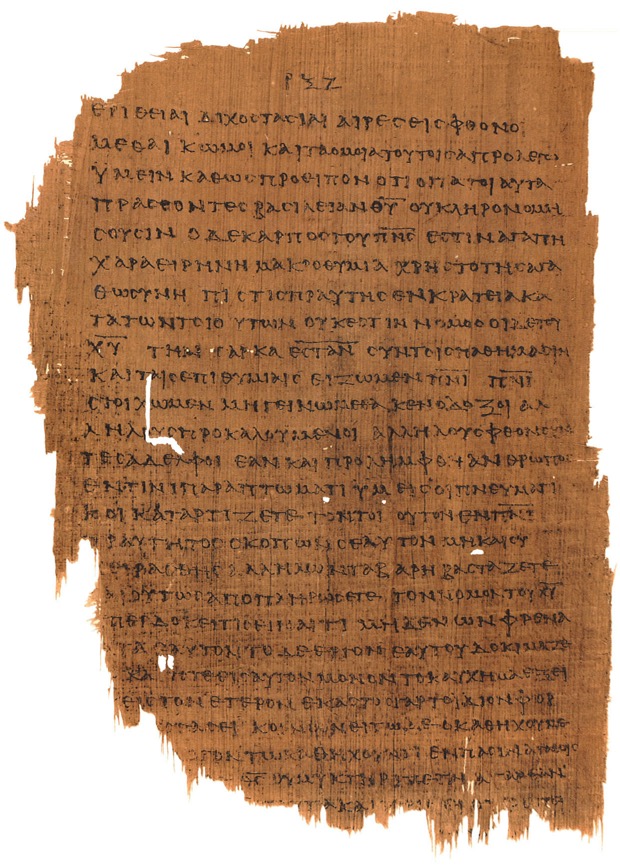 ΡΞΖ
ΕΡΙΘΕΙΑΙ ΔΙΧΟϹΤΑϹΙΑΙ ΑΙΡΕϹΕΙϹ ΦΘΟΝΟΙ
ΜΕΘΑΙ ΚΩΜΟΙ ΚΑΙ ΤΑ ΟΜΟΙΑ ΤΟΥΤΟΙϹ Α ΠΡΟΛΕΓΩ
ΥΜΕΙΝ ΚΑΘΩϹ ΠΡΟΕΙΠΟΝ ΟΤΙ ΟΙ ΤΑ ΤΟΙΑΥΤΑ
ΠΡΑϹϹΟΝΤΕϹ ΒΑϹΙΛΕΙΑΝ Θ̅Υ̅ ΟΥ ΚΛΗΡΟΝΟΜΗ
ϹΟΥϹΙΝ Ο ΔΕ ΚΑΡΠΟϹ ΤΟΥ Π̅Ν̅Ϲ̅ ΕϹΤΙΝ ΑΓΑΠΗ
ΧΑΡΑ ΕΙΡΗΝΗ ΜΑΚΡΟΘΥΜΙΑ ΧΡΗϹΤΟΤΗϹ ΑΓΑ
ΘΩϹΥΝΗ ΠΙϹΤΙϹ ΠΡΑΥΤΗϹ ΕΝΚΡΑΤΕΙΑ ΚΑ
ΤΑ ΤΩΝ ΤΟΙΟΥΤΩΝ ΟΥΚ ΕϹΤΙΝ ΝΟΜΟϹ ΟΙ ΔΕ ΤΟΥ
Χ̅Υ̅ ΤΗΝ ϹΑΡΚΑ ΕϹ̅Τ̅Α̅Ν̅ ϹΥΝ ΤΟΙϹ ΠΑΘΗΜΑϹΙΝ
ΚΑΙ ΤΑΙϹ ΕΠΙΘΥΜΙΑΙϹ ΕΙ ΖΩΜΕΝ Π̅Ν̅Ι̅ Π̅Ν̅Ι̅
ϹΤΟΙΧΩΜΕΝ ΜΗ ΓΕΙΝΩΜΕΘΑ ΚΕΝΟΔΟΞΟΙ ΑΛ
ΛΗΛΟΥϹ ΠΡΟΚΑΛΟΥΜΕΝΟΙ ΑΛΛΗΛΟΥϹ ΦΘΟΝΟΥΝ
ΤΕϹ ΑΔΕΛΦΟΙ ΕΑΝ ΚΑΙ ΠΡΟΛΗΜΦΘΗ ΑΝΘΡΩΠΟϹ
ΕΝ ΤΙΝΙ ΠΑΡΑΠΤΩΜΑΤΙ ΥΜΕΙϹ ΟΙ ΠΝΕΥΜΑΤΙ
ΚΟΙ ΚΑΤΑΡΤΙΖΕΤΕ ΤΟΝ ΤΟΙΟΥΤΟΝ ΕΝ Π̅Ν̅Ι̅
ΠΡΑΥΤΗΤΟϹ ϹΚΟΠΩΝ ϹΕΑΥΤΟΝ ΜΗ ΚΑΙ ϹΥ
ΠΕΙΡΑϹΘΗϹ ΑΛΛΗΛΩΝ ΤΑ ΒΑΡΗ ΒΑϹΤΑΖΕΤΕ
ΟΥΤΩϹ ΑΠΟΠΛΗΡΩϹΕΤΕ ΤΟΝ ΝΟΜΟΝ ΤΟΥ Χ̅Υ̅
ΠΕΡ ΔΟΚΕΙ ΤΙϹ ΕΙΝΑΙ ΤΙ ΜΗΔΕΝ ΩΝ ΦΡΕΝΑ
ΤΑ ΕΑΥΤΟΝ ΤΟ ΔΕ ΕΡΓΟΝ ΕΑΥΤΟΥ ΔΟΚΙΜΑΖΕ
ΚΑΙ ΤΟΤΕ ΕΙϹ ΕΑΥΤΟΝ ΜΟΝΟΝ ΤΟ ΚΑΥΧΗΜΑ ΕΞΕΙ
ΕΙϹ ΤΟΝ ΕΤΕΡΟΝ ΕΚΑϹΤΟϹ ΓΑΡ ΤΟ ΙΔΙΟΝ ΦΟΡ
ΤΑϹΕΙ ΚΟΙΝΩΝΕΙΤΩ ΔΕ Ο ΚΑΤΗΧΟΥΜΕ
ΓΟΝ ΤΩ ΚΑΤΗΧΟΥΝΤΙ ΕΝ ΠΑϹΙΝ ΑΓΑΘΟΙϹ
Θ̅Ϲ̅ ΟΥ ΜΥΚΤΗΡΙΖΕΤΑΙ Ο ΓΑΡ ΕΑΝ
ΚΑΙ